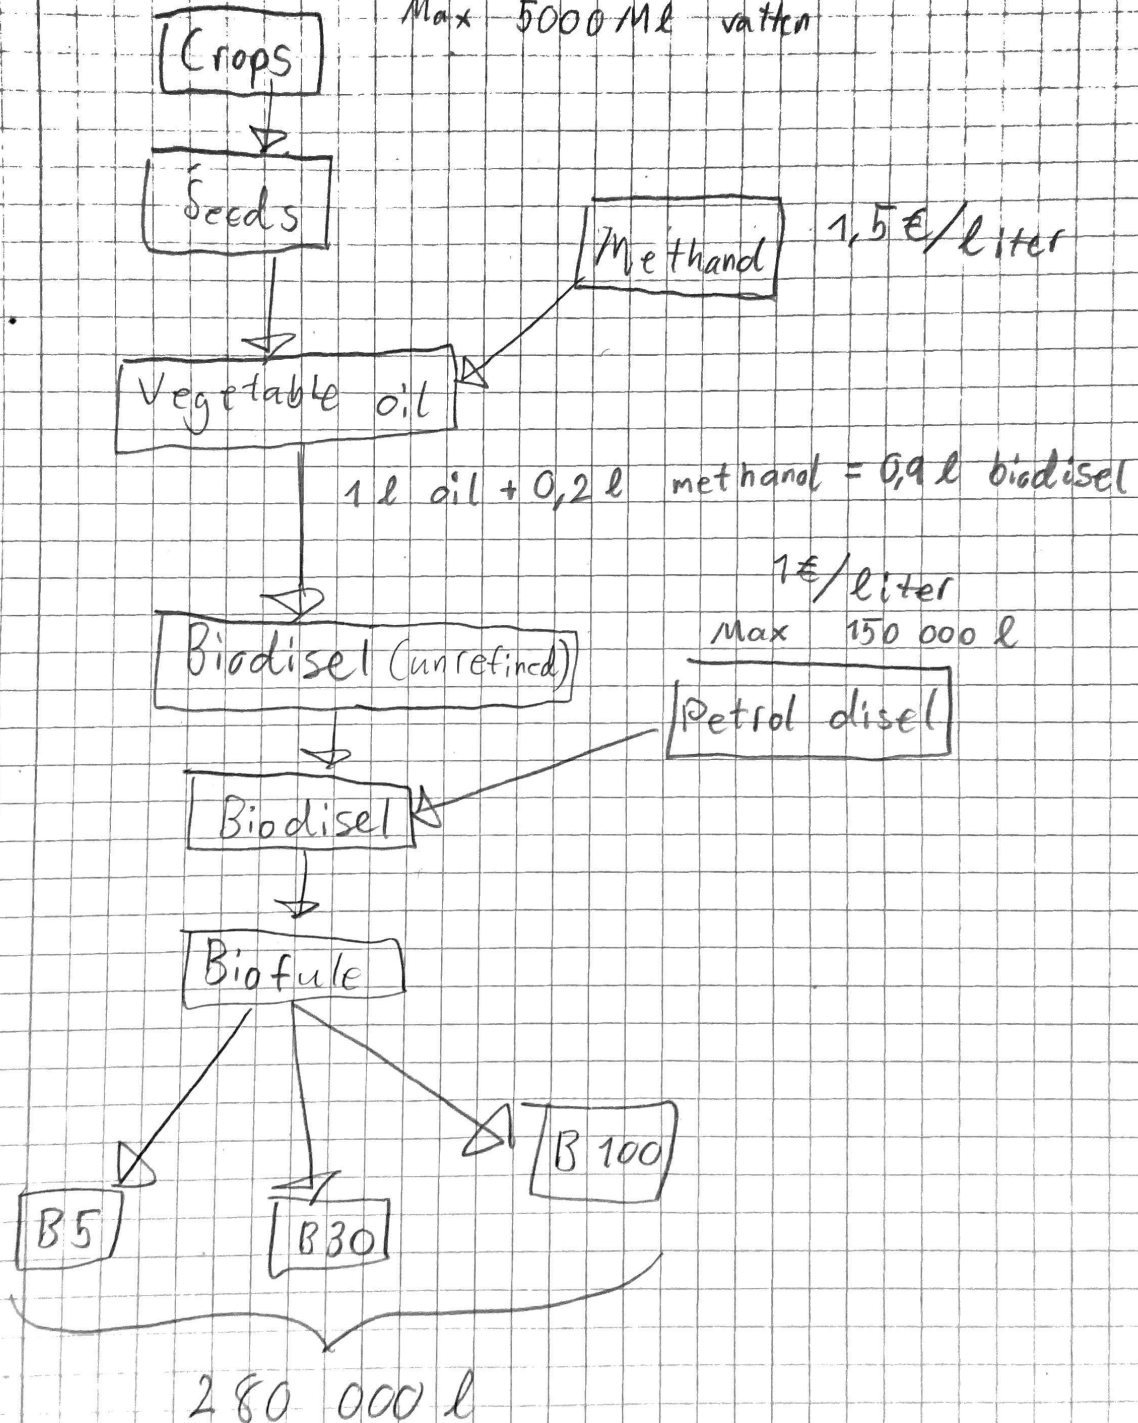 Max 5000 Ml vatten
Crops
Seeds
Methanol
1,5 €/liter
Vegetable oil
1 l oil + 0,2 l methanol = 0,9 l biodisel
1 €/liter
Max 150 000 l
Biodisel (unrefined)
Petrol disel
Biodisel
Biofule
B 100
B5
B30
280 000 l